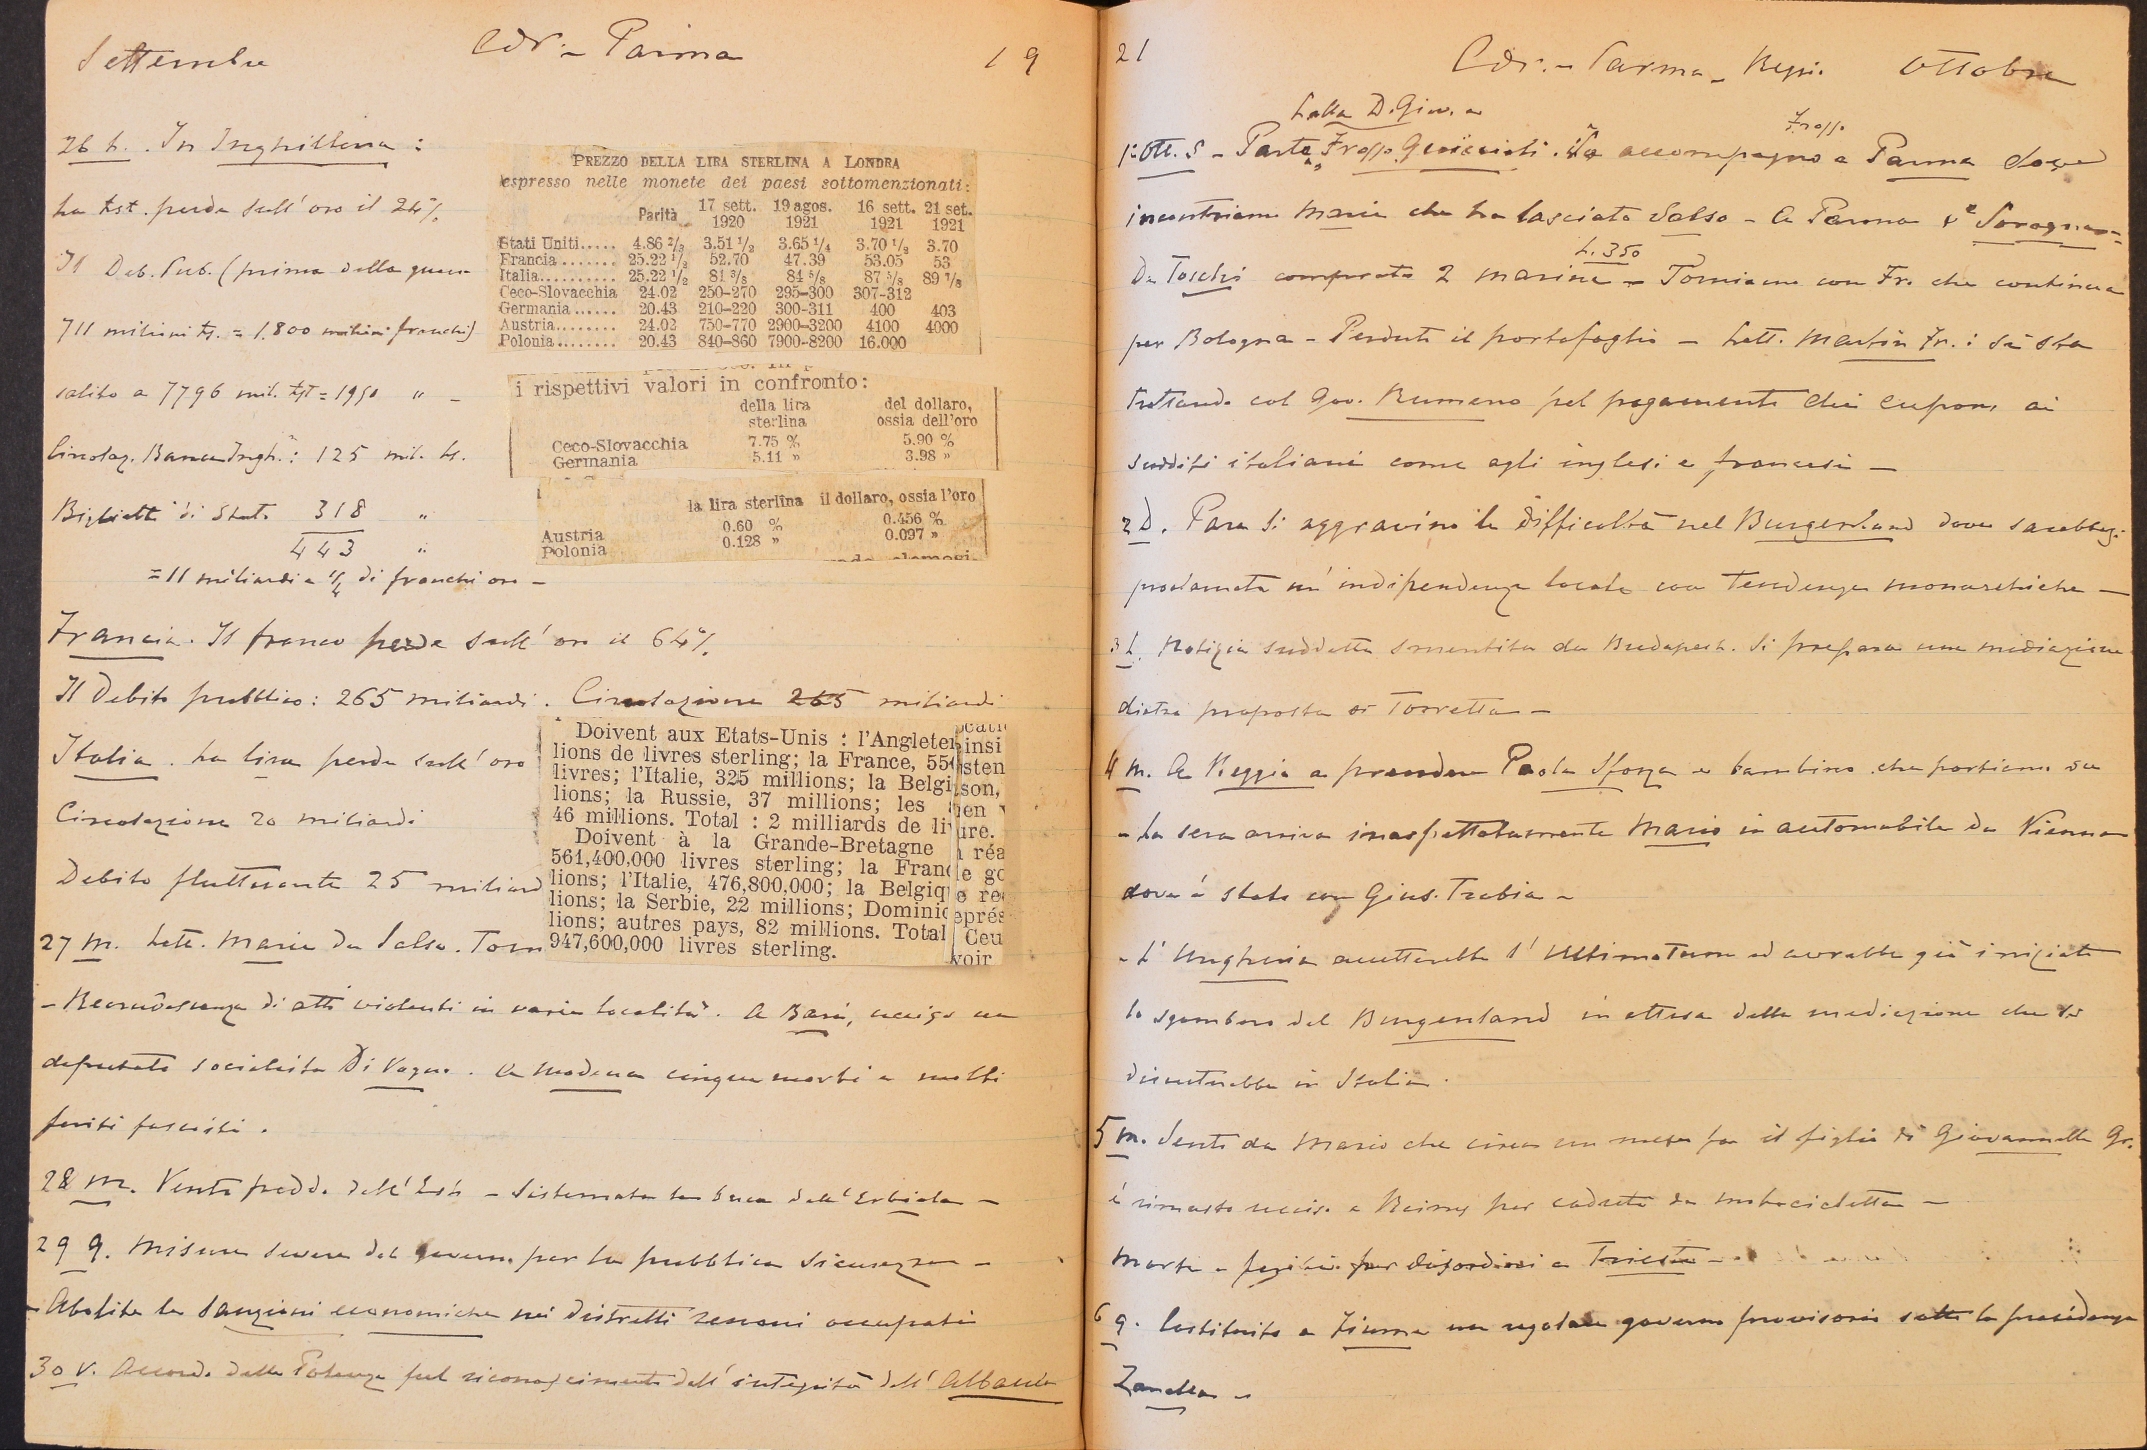 Settembre Cdr. - Parma 19
26 L. In Inghilterra:
la Lst. perde sull'oro il 24%
Il Deb. Pub. (prima della guerra
711 milioni Ls. = 1.800 milioni franchi)
salito a 7796 mil. Lst = 1950 " -
Circolaz. Banca Ingh.: 125 mil. Ls.
Biglietti di Stato 318 "
443 "
= 11 miliardi e 1/4 di franchi oro -
PREZZO DELLA LIRA STERLINA A LONDRA
espresso nelle monete dei paesi sottomenzionati:
Parità 17 sett. 1920 19 agos. 1921 16 sett. 1921 21 set. 1921
Stati Uniti..... 4.86 2/3 3.51 1/2 3.65 1/4 3.70 1/2 3.70
Francia....... 25.22 1/2 52.70 47.39 53.05 53
Italia.......... 25.22 1/2 81 3/8 84 5/8 87 5/8 89 7/8
Ceco-Slovacchia 24.02 250-270 295-300 307-312
Germania...... 20.43 210-220 300-311 400 403
Austria........ 24.02 750-770 2900-3200 4100 4000
Polonia........ 20.43 840-860 7900-8200 16.000
i rispettivi valori in confronto:
della lira sterlina del dollaro, ossia dell'oro
Ceco-Slovacchia 7.75 % 5.90 %
Germania 5.11 » 3.98 »
la lira sterlina il dollaro, ossia l'oro
Austria 0.60 % 0.456 %
Polonia 0.128 » 0.097 »
Francia. Il franco perde sull'oro il 64%
Il Debito pubblico: 265 miliardi. Circolazione 265 miliardi
Italia. La lira perde sull'oro
Circolazione 20 miliardi
Debito fluttuante 25 miliard
Doivent aux Etats-Unis : l'Angleter
lions de livres sterling; la France, 55
livres; l'Italie, 325 millions; la Belgi
lions; la Russie, 37 millions; les
46 millions. Total : 2 milliards de li
Doivent à la Grande-Bretagne
561,400,000 livres sterling; la Fran
lions; l'Italie, 476,800,000; la Belgiq
lions; la Serbie, 22 millions; Dominic
lions; autres pays, 82 millions. Total
947,600,000 livres sterling.
27 M. Lett. Maria da Salso. Torn
- Recrudescenza di atti violenti in varie località. A Bari, ucciso un
deputato socialista Di Vagno. A Modena cinque morti e molti
feriti fascisti.
28 M. Vento freddo dell'Est - Sistemata la buca dell'
29 G. Misure severe del governo per la pubblica sicurezza -
- Abolite le Sanzioni economiche nei distretti renani occupati
30 V. Accordo delle Potenze pel riconoscimento dell'integrità dell'Albania
21 Cdr. - Parma - Reggio Ottobre
Lalla D. Giov. e
1° Ott. S - Parte Froppo. accompagno a Parma dove
incontriamo Maria che ha lasciato Salso - A Parma e Soragna -
L. 350
Da Toschi comprate 2 marine - Torniamo con Fr. che continua
per Bologna - Perduto il portafoglio - Lett. Martin Fr.: si sta
trattando col Gov. Rumeno pel pagamento dei cuponi ai
sudditi italiani come agli inglesi e francesi -
2 D. Pare si aggravino le difficoltà nel Burgenland dove sarebbesi
proclamata un'indipendenza locale con tendenze monarchiche -
3 L. Notizia suddetta smentita da Budapest. Si prepara una mediazione
dietro proposta di Torretta -
4 M. A Reggio a prendere Paola Sforza e bambino che portiamo
- La sera arriva inaspettatamente Mario in automobile da Vienna
dove è stato con Gius. Trebia -
- L'Ungheria accetterebbe l'Ultimatum ed avrebbe già iniziato
lo sgombero del Burgenland in attesa della mediazione che si
discuterebbe in Italia.
5 M. Sento da Mario che circa un mese fa il figlio di Giovannella Gr.
è rimasto ucciso a Reims per caduta da motocicletta -
Morte e feriti per disordini a Trieste -
6 G. Costituito a Fiume un regolare governo provvisorio sotto la presidenza
Zanella -